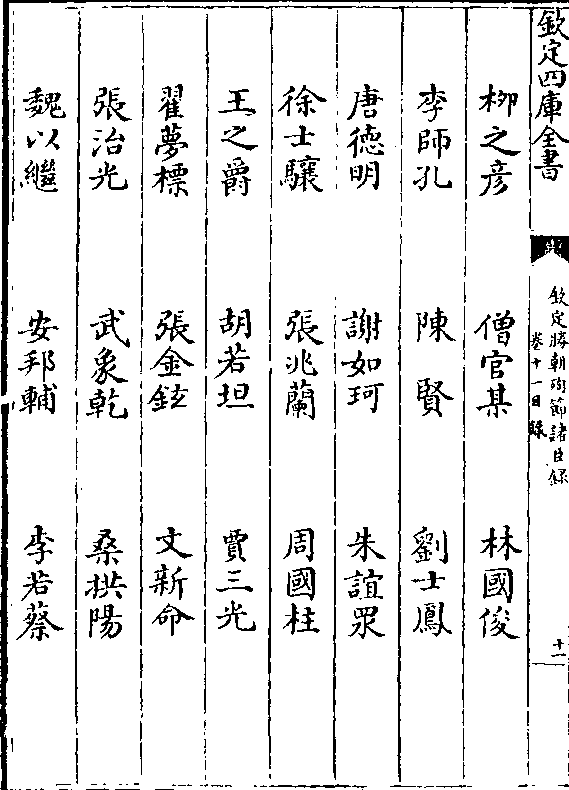 欽定四庫全書
欽定勝朝殉節諸臣錄
卷十一目錄
十一
柳之彦 僧官某 林國俊
李師孔 陳賢 劉士鳳
唐德明 謝如珂 朱誼眾
徐士驤 張兆蘭 周國柱
王之爵 胡若坦 賈三光
翟夢標 張金鉉 文新命
張治光 武象乾 桑拱陽
魏以繼 安邦輔 李若蔡